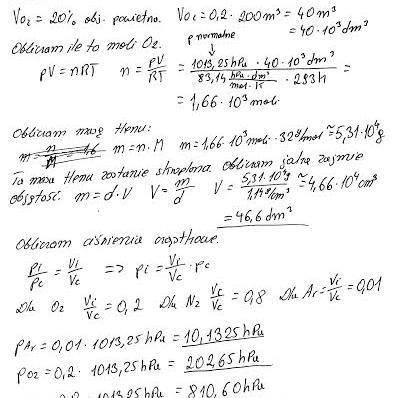 V_O₂ = 20% obj. powietrza. V_O₂ = 0,2 · 200 m³ = 40 m³
= 40 · 10³ dm³
Obliczam ile to moli O₂.
p normalne
pV = nRT n = pV/RT = 1013,25 hPa · 40 · 10³ dm³ / 83,14 hPa · dm³/mol · K · 293 K =
= 1,66 · 10³ mol
Obliczam masę tlenu:
m = n · M m = 1,66 · 10³ mol · 32 g/mol ≈ 5,31 · 10⁴ g
Ta masa tlenu zostanie skroplona. Obliczam jaką zajmie
objętość. m = d · V V = m/d V = 5,31 · 10⁴ g / 1,14 g/cm³ ≈ 4,66 · 10⁴ cm³
= 46,6 dm³
Obliczam ciśnienie cząstkowe.
pi/pc = Vi/Vc => pi = Vi/Vc · pc
Dla O₂ Vi/Vc = 0,2 Dla N₂ Vi/Vc = 0,8 Dla Ar = Vi/Vc = 0,01
pAr = 0,01 · 1013,25 hPa = 10,1325 hPa
pO₂ = 0,2 · 1013,25 hPa = 202,65 hPa
· 1013,25 hPa = 810,60 hPa